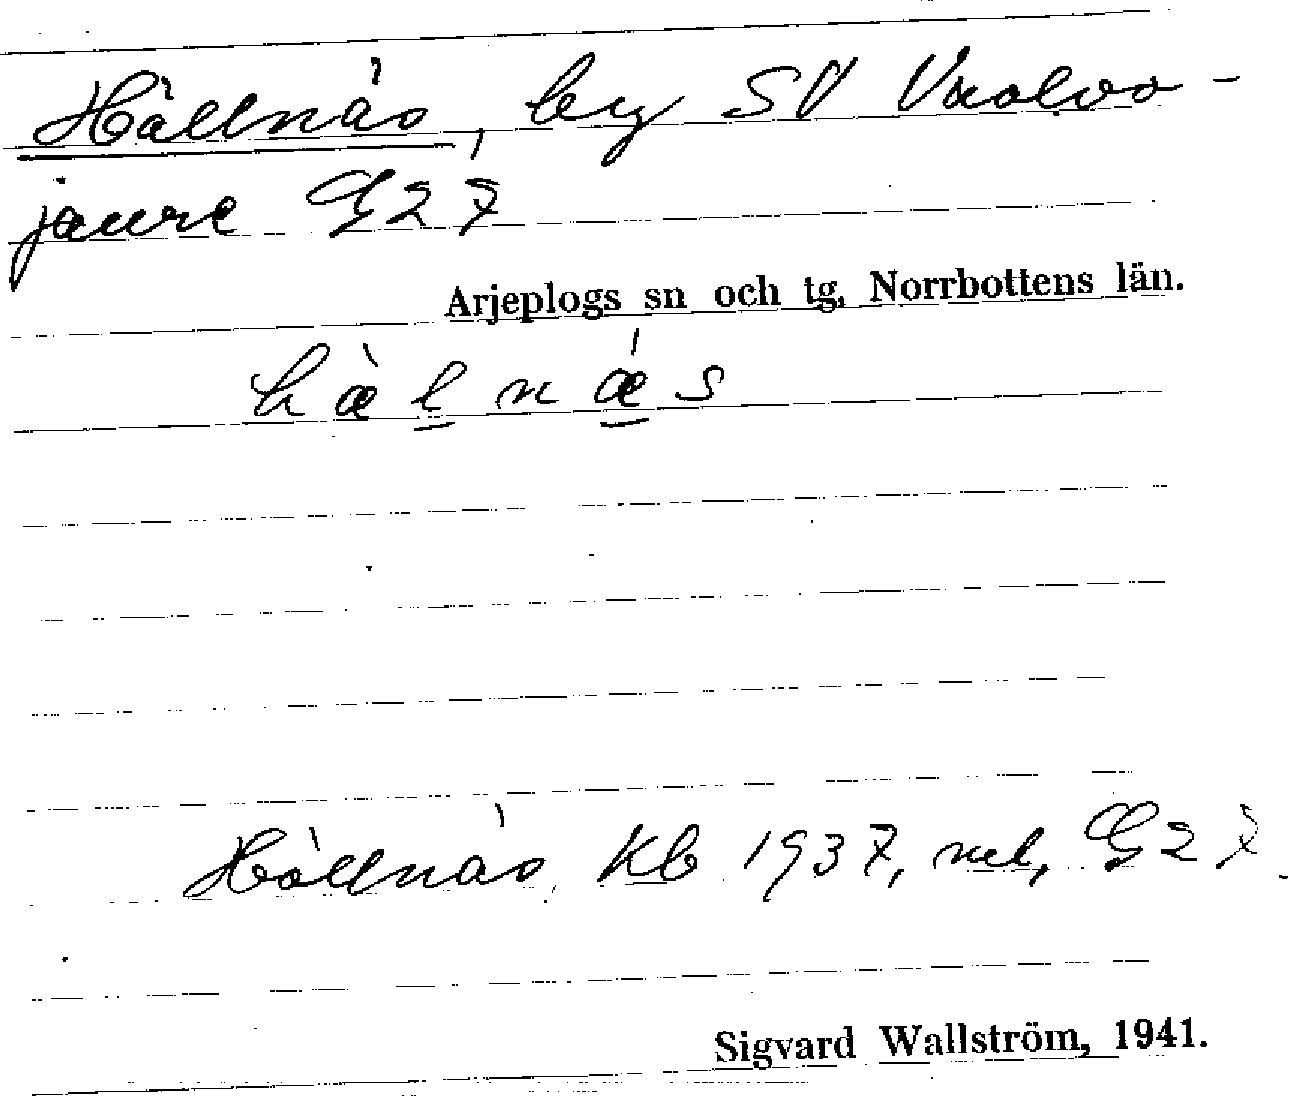 Hällnäs, by SV Vuolvo-
jaure G27
Arjeplogs sn och tg, Norrbottens län.
hæ̀lnǽs
Hällnäs, Kb 1937, G27
Sigvard Wallström, 1941.